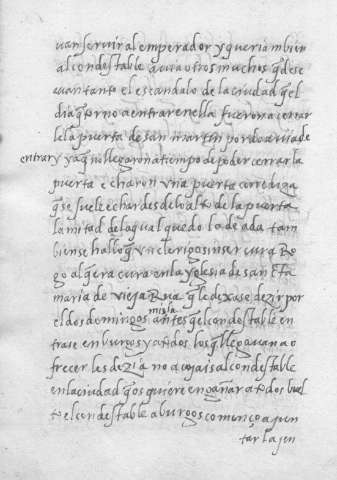 uan seruir al emperador y queria mbien
al condestable auia otros muchos q̃ dese
auan tanto el escandalo de la ciudad q̃ el
dia q̃ torno a entrar en ella fueron a cerrar
le la puerta de san martin por do auia de
entrar y ya q̃ no llegaron a tiempo de poder cerrar la
puerta echaron vna puerta corrediza
q̃ se suele echar desde lo alto de la puerta
la mitad de la qual quedo lodeada tam
bien se hallo q̃ vn clerigo sin ser cura Ro
go al q̃ era cura en la yglesia de santa
maria de vieja Rua q̃ le dexase dezir por
el dos domingos misa antes q̃ el condestable en
trase en burgos y a todos los q̃ llegauan a o
frecer les dezia no acojais al condestable
en la ciudad q̃ os quiere engañar a todos buel
to el condestable a burgos començo a jun
tar la jen